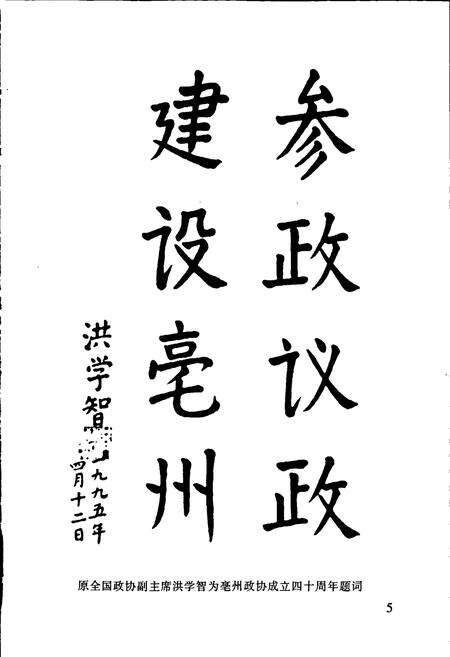 参政议政
建设亳州
洪学智
一九九五年
四月十二日
原全国政协副主席洪学智为亳州政协成立四十周年题词
5